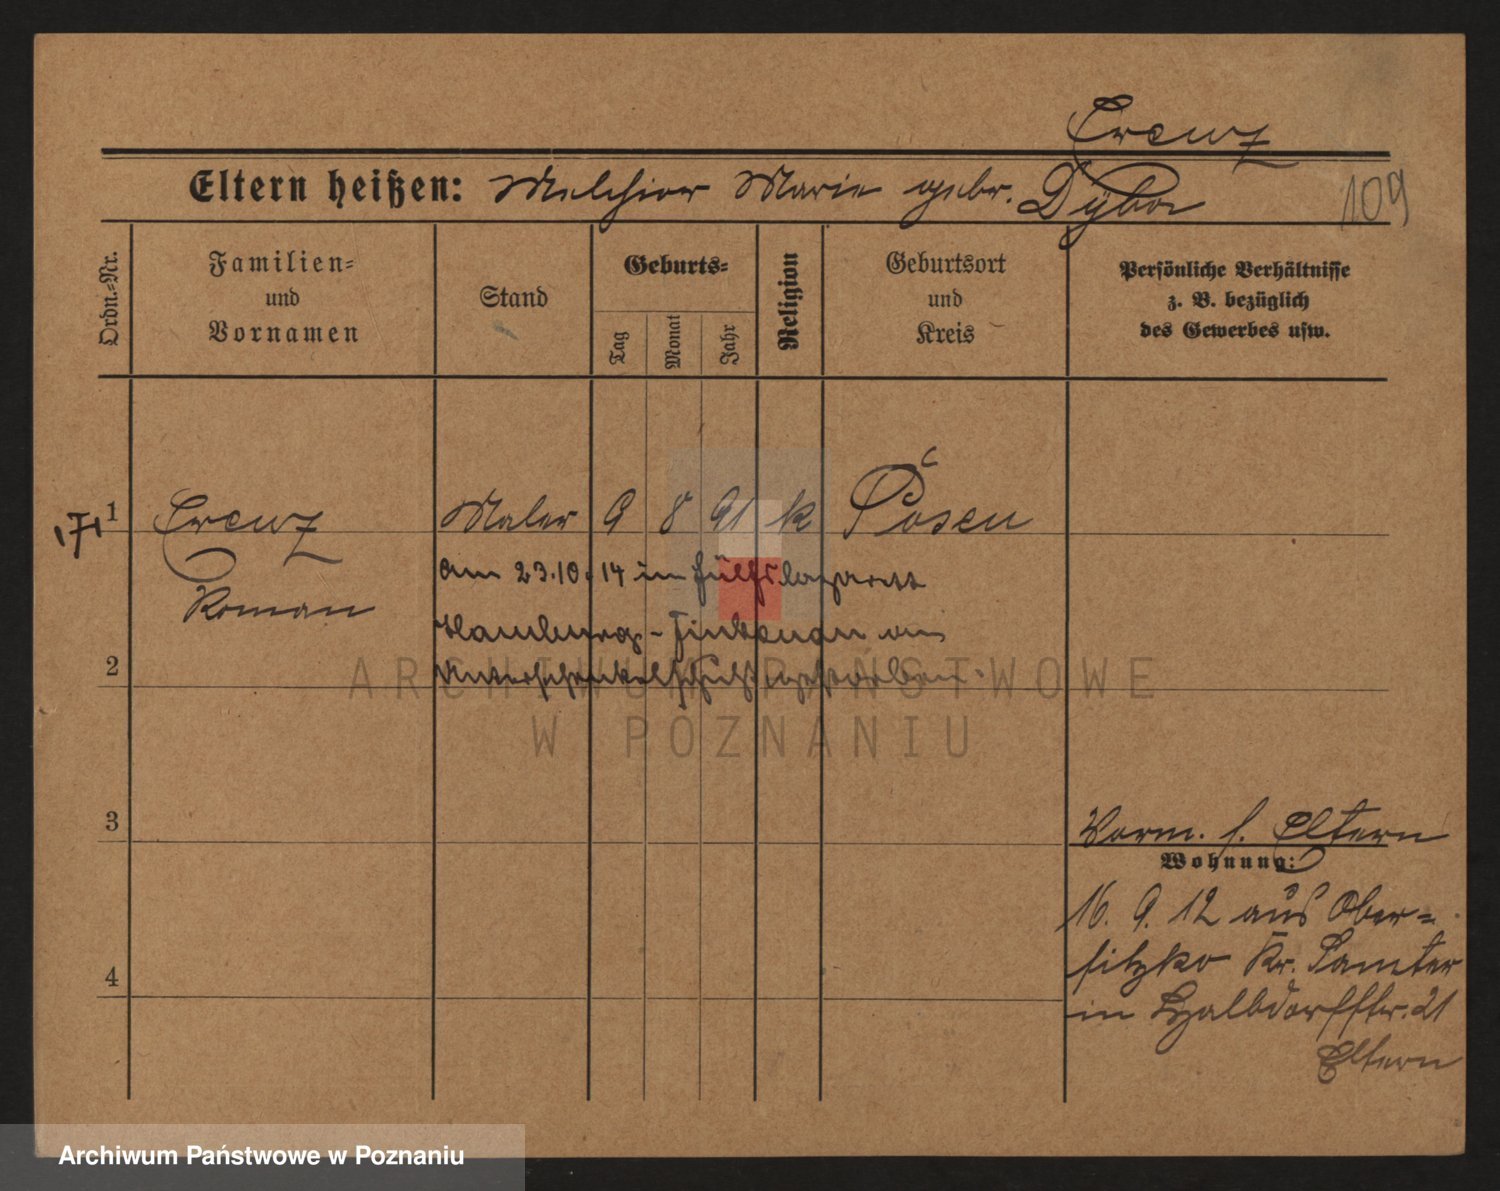 Crewz
Eltern heißen: Melchior Marie gebr. Dyba
109
Ordn.-Nr.
Familien-
und
Vornamen
Stand
Geburts-
Tag
Monat
Jahr
Religion
Geburtsort
und
Kreis
Persönliche Verhältnisse
z. B. bezüglich
des Gewerbes usw.
1 Crewz Maler 9 8 91 k Posen
Roman
am 23.10.14 im Hülfslazarett
Hamburg-Finkenau an
Unterschenkelschuß gestorben.
2
3
4
Vorm. s. Eltern
Wohnung:
16. 9. 12 aus Ober-
sitzko Kr. Samter
in Halbdorffstr. 21
Eltern
ARCHIWUM PAŃSTWOWE
W POZNANIU
Archiwum Państwowe w Poznaniu